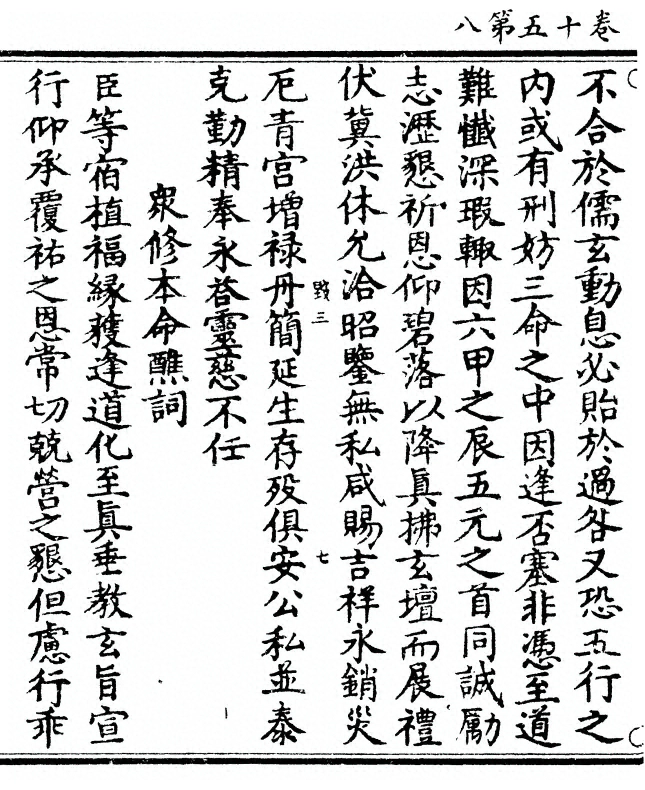 八第五十卷
不合於儒玄動息必貽於過咎又恐五行之
内或有刑妨三命之中因逢否塞非憑至道
難懺深瑕輙因六甲之辰五元之首同誠勵
志瀝懇祈恩仰碧落以降眞拂玄壇而展禮
伏冀洪休允洽昭鑒無私咸賜吉祥永銷災
厄青宮增禄丹簡延生存殁俱安公私並泰
三
七
克勤精奉永荅靈慈不任
衆修本命醮詞
臣等宿植福縁獲逢道化至眞垂教玄旨宣
行仰承覆祐之恩常切兢營之懇但慮行乖